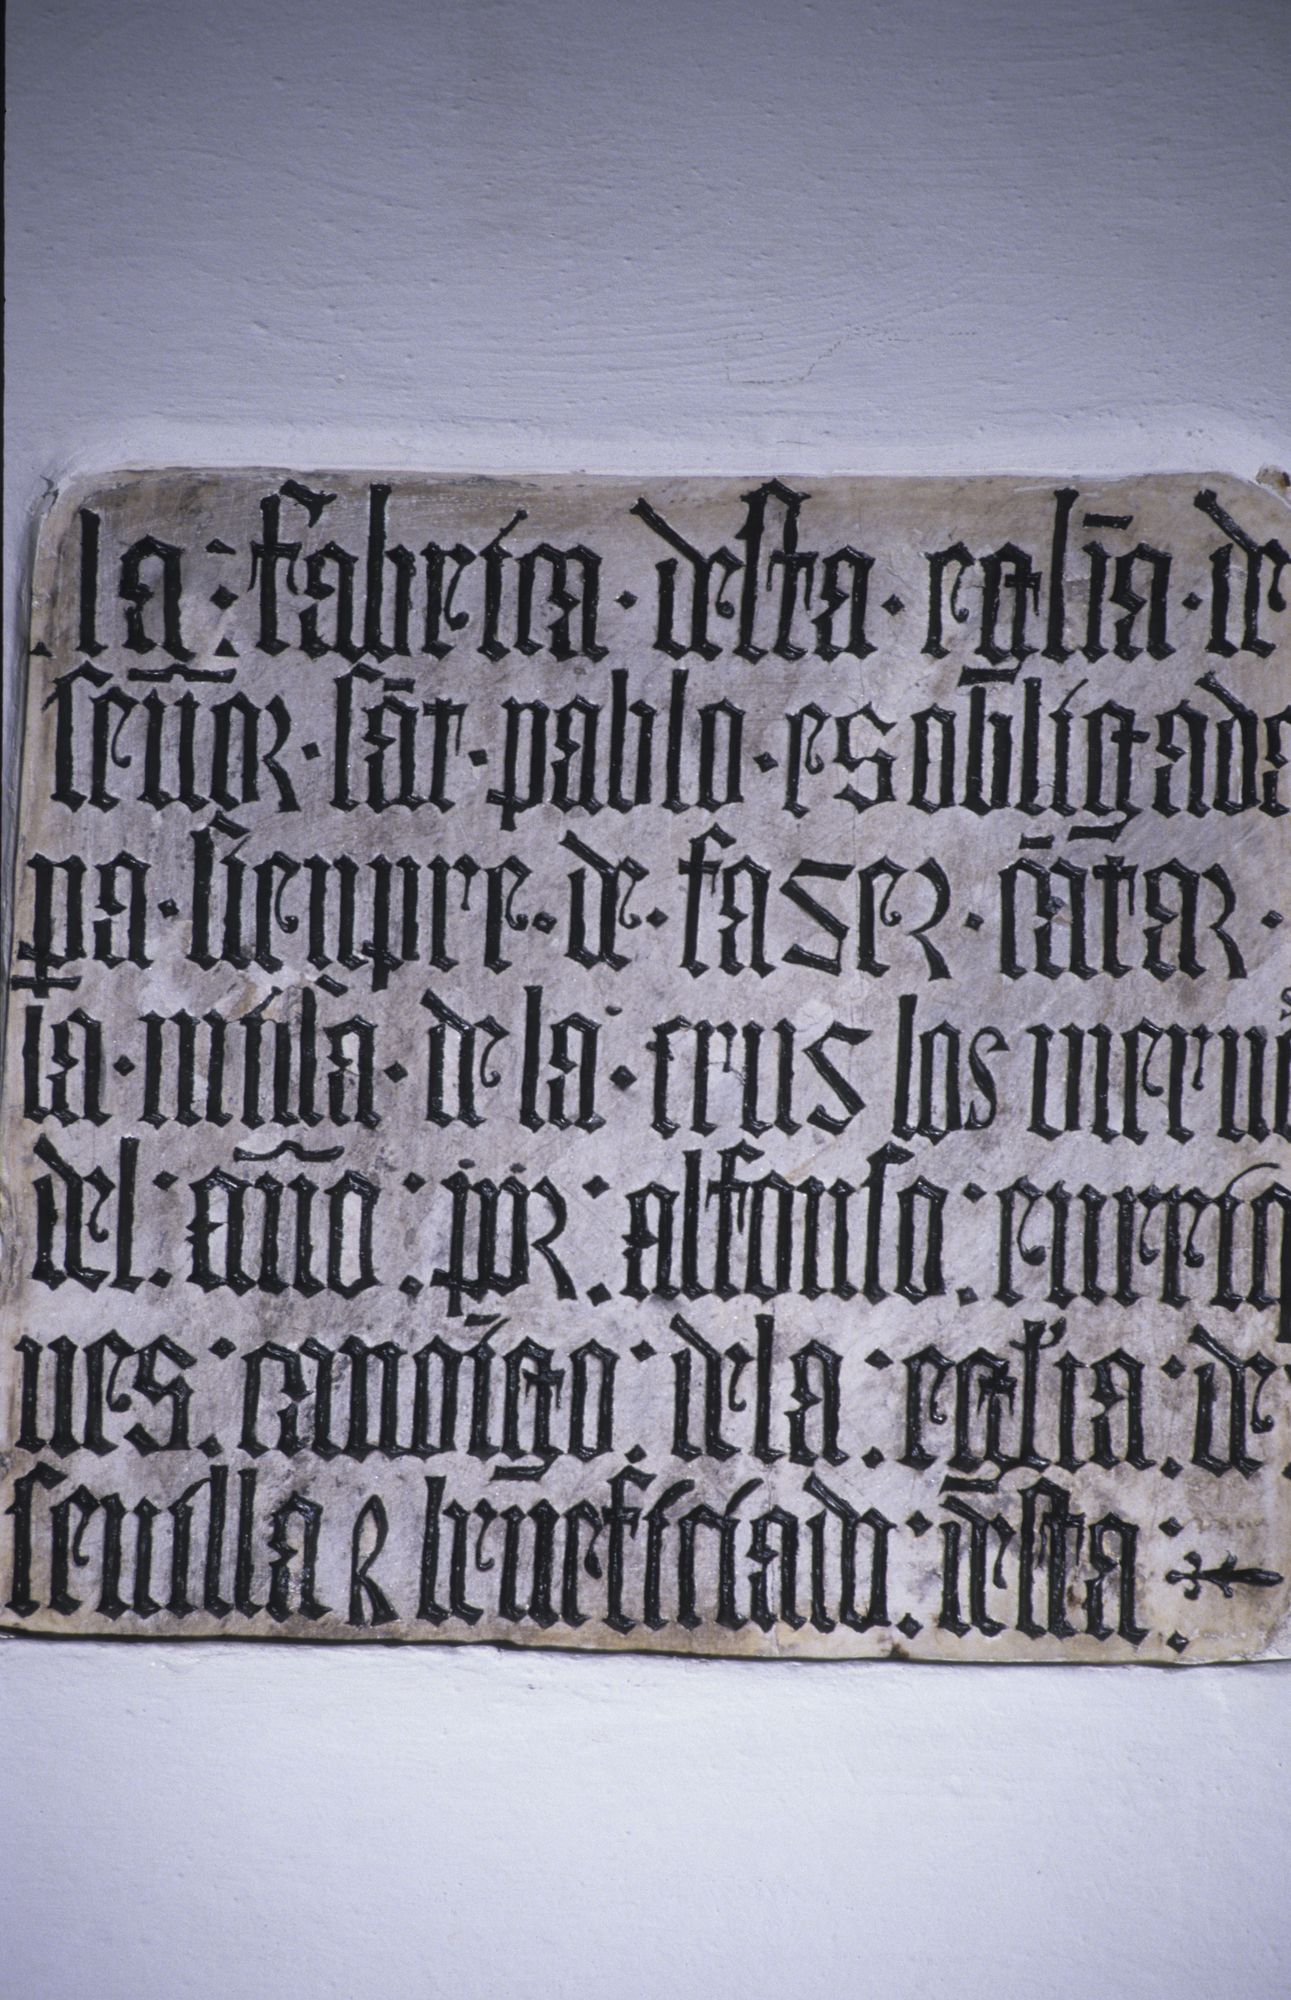 la : fabrica · desta · eglīa · de
señor · sāt · pablo · es obligada
pa · sienpre · de · faser · cātar ·
la · missa · de la · cruz los viernes
del : año : por : alfonso : enrriq
ues : canonigo : de la : eglia : de :
seuilla & beneficiado : desta :